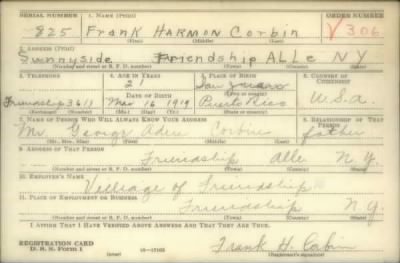 SERIAL NUMBER 1. NAME (Print) ORDER NUMBER
825 Frank HARMON Corbin V306
(First) (Middle) (Last)
2. ADDRESS (Print)
Sunnyside Friendship ALLE NY
(Number and street or R. F. D. number) (Town) (County) (State)
3. TELEPHONE 4. AGE IN YEARS 5. PLACE OF BIRTH 6. COUNTRY OF CITIZENSHIP
21 San
DATE OF BIRTH (Town or county)
Friendship 3611 Mar 16 1919 Puerto Rico U.S.A.
(Exchange) (Number) (Mo.) (Day) (Yr.) (State or country)
7. NAME OF PERSON WHO WILL ALWAYS KNOW YOUR ADDRESS 8. RELATIONSHIP OF THAT PERSON
Mr. George Corbin father
(Mr., Mrs., Miss) (First) (Middle) (Last)
9. ADDRESS OF THAT PERSON
Friendship Alle N.Y.
(Number and street or R. F. D. number) (Town) (County) (State)
10. EMPLOYER'S NAME
Village of Friendship
11. PLACE OF EMPLOYMENT OR BUSINESS
Friendship N.Y.
(Number and street or R. F. D. number) (Town) (County) (State)
I AFFIRM THAT I HAVE VERIFIED ABOVE ANSWERS AND THAT THEY ARE TRUE.
REGISTRATION CARD
D. S. S. Form 1 (over) 16—17105 Frank H. Corbin
(Registrant's signature)